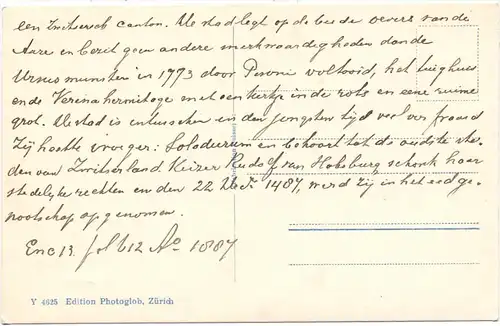 een Zwitsersch canton. De stad ligt op de beide oevers van de
Aare en bezit geen andere merkwaardigheden dan de
Ursusmunster in 1773 door Pisoni voltooid, het tuighuis
en de Verena hermitage met een kerkje in de rots en eene ruime
grot. De stad is intusschen in den jongsten tijd veel verfraaid
Zij heette vroeger: Solodurum en behoort tot de oudste ste-
den van Zwitserland. Keizer Rudolf van Habsburg schonk haar
stedelijke rechten en den 22 Dec. 1481, werd zij in het eedge-
nootschap opgenomen.
Enc 13. fol 612 Ao 1887
Y 4625 Edition Photoglob, Zürich